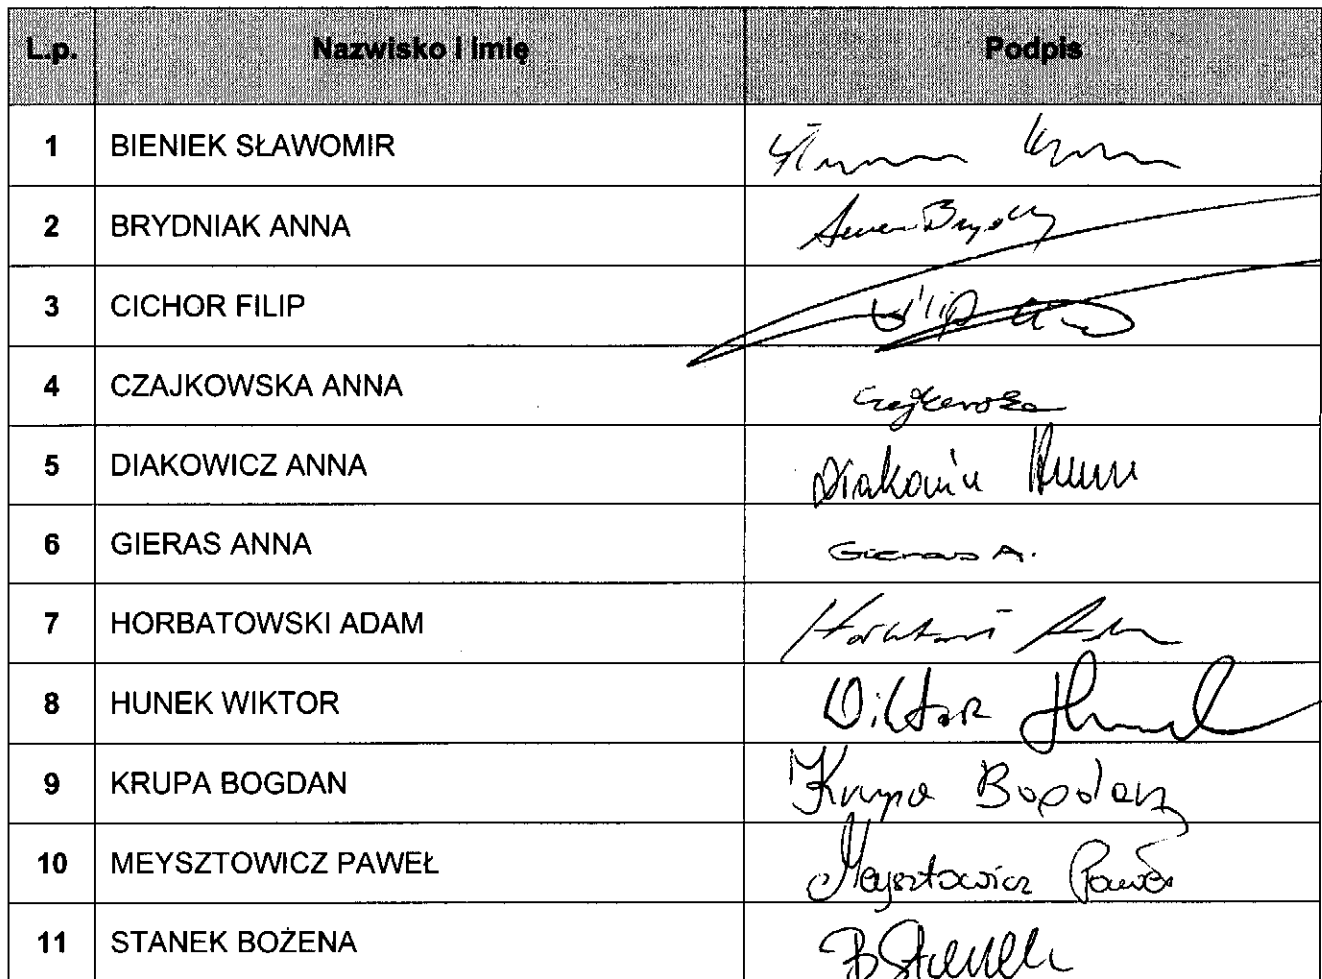 L.p. Nazwisko i Imię Podpis
1 BIENIEK SŁAWOMIR
2 BRYDNIAK ANNA Anna
3 CICHOR FILIP Filip
4 CZAJKOWSKA ANNA Czajkowska
5 DIAKOWICZ ANNA Diakowicz Anna
6 GIERAS ANNA Gieras A.
7 HORBATOWSKI ADAM
8 HUNEK WIKTOR Wiktor Hunek
9 KRUPA BOGDAN Krupa Bogdan
10 MEYSZTOWICZ PAWEŁ Meysztowicz Paweł
11 STANEK BOŻENA B Stanek